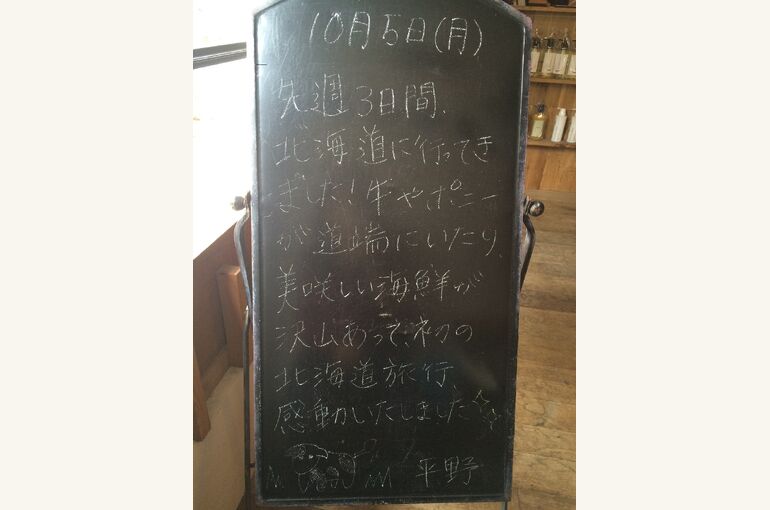 10月5日(月)
先週3日間、
北海道に行ってき
ました!牛やポニー
が道端にいたり、
美咲しい海鮮が
沢山あって、初の
北海道旅行、
感動いたしました
平野